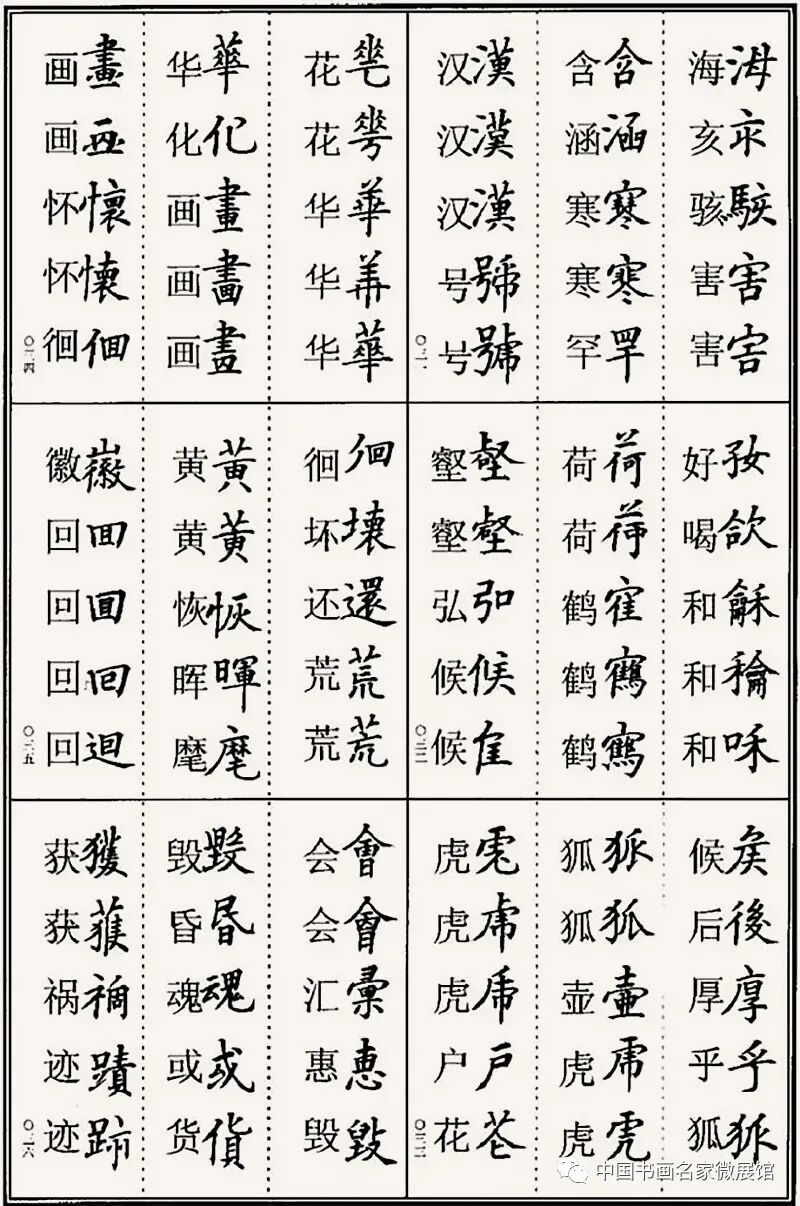 海海 亥亥 骇駭 害害 害害
含含 涵涵 寒寒 寒寒 罕罕
汉漢 汉漢 汉漢 号號 号號
〇三一
好好 喝欱 和龢 和龢 和咊
荷荷 荷荷 鹤隺 鹤鶴 鹤鶴
壑壑 壑壑 弘弘 候候 候
〇三二
候矦 后後 厚厚 乎乎 狐狐
狐狐 狐狐 壶壺 虎虎 虎虎
虎虎 虎虎 虎虎 户戶 花花
〇三三
花花 花花 华華 华華 华華
华華 化化 画畫 画畫 画畫
画畫 画画 怀懷 怀懷 徊徊
〇三四
徊徊 坏壞 还還 荒荒 荒荒
黄黃 黄黃 恢恢 晖暉 麾麾
徽徽 回囬 回囘 回回 回迴
〇三五
会會 会會 汇彙 惠惠 毁毀
毁毀 昏昬 魂魂 或或 货貨
获獲 获獲 祸禍 迹蹟 迹跡
〇三六
中国书画名家微展馆